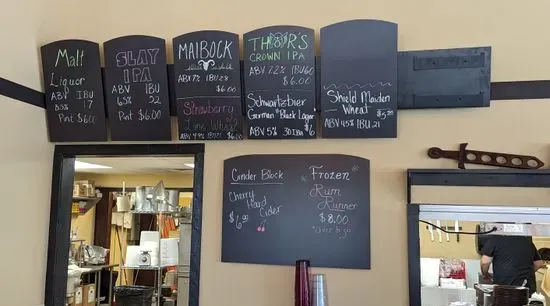 Malt
Liquor
ABV IBU
17
Pint $6.00
SLAY
IPA
ABV IBU
6.5% 52
Pint $6.00
MAIBOCK
ABV 7% IBU 28
$6.00
Strawberry
Lime Wheat
ABV 4.9% IBU 21 $6.00
THOR'S
CROWN IPA
ABV 7.2% IBU 60
$6.00
Schwartzbier
German "Black Lager"
ABV 5% 30 IBU $6
Shield Maiden
Wheat $5.00
ABV 4.5% IBU 21
Cinder Block
Cherry
Hard
Cider
$6.00
Frozen
Rum
Runner
$8.00